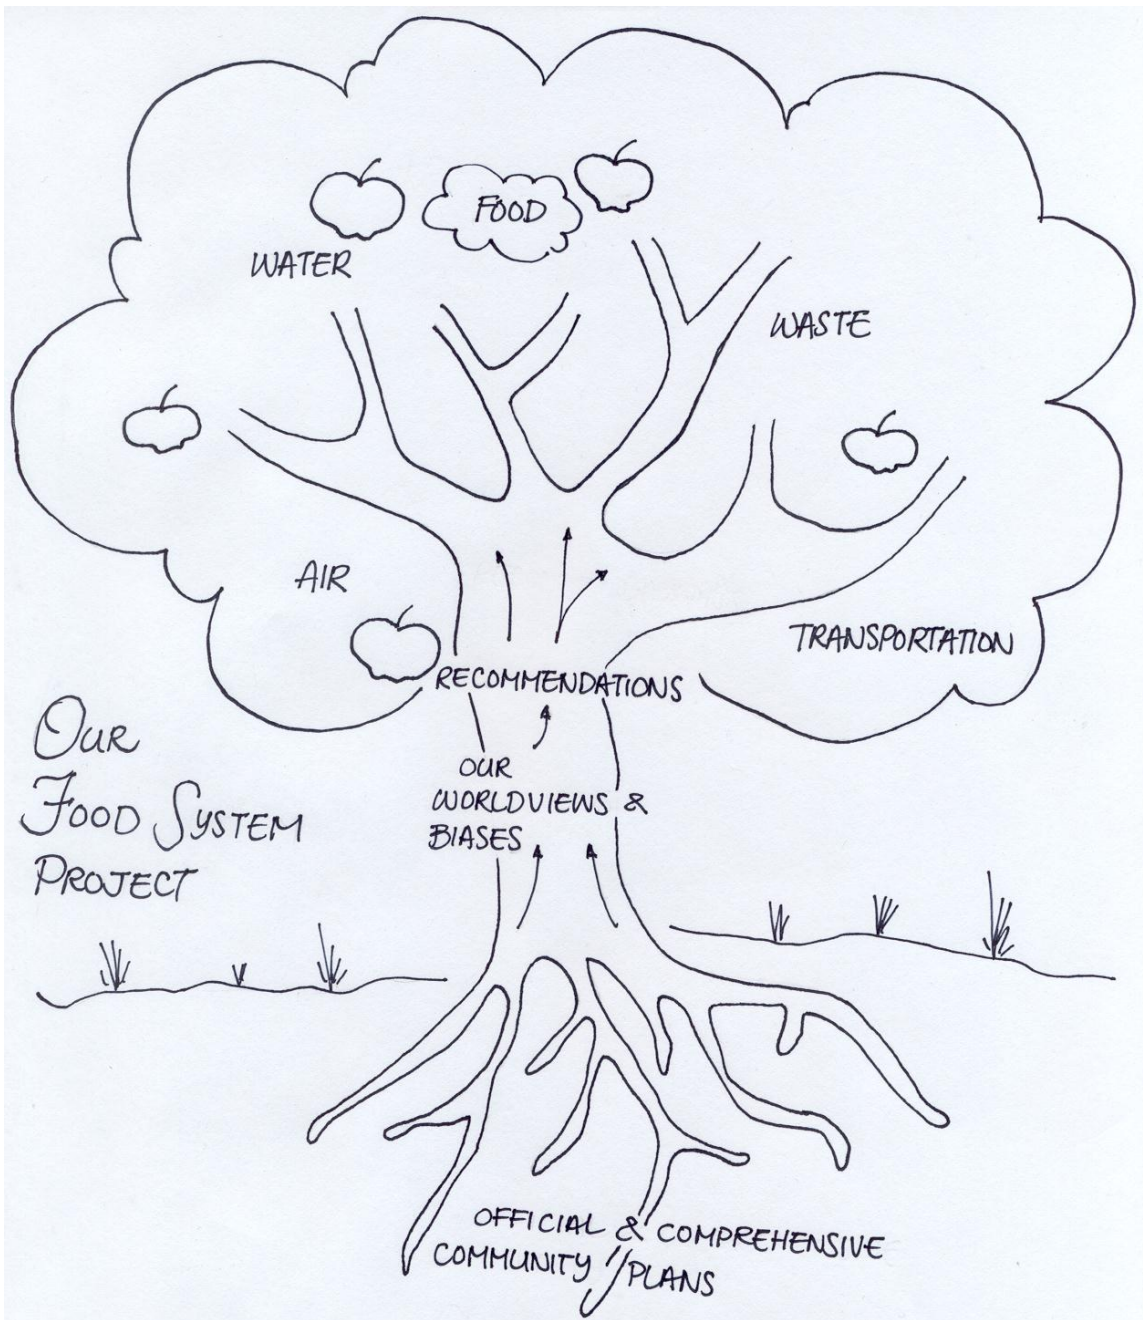 FOOD
WATER
WASTE
AIR
TRANSPORTATION
RECOMMENDATIONS
OUR
WORLDVIEWS &
BIASES
OUR
FOOD SYSTEM
PROJECT
OFFICIAL & COMPREHENSIVE
COMMUNITY PLANS